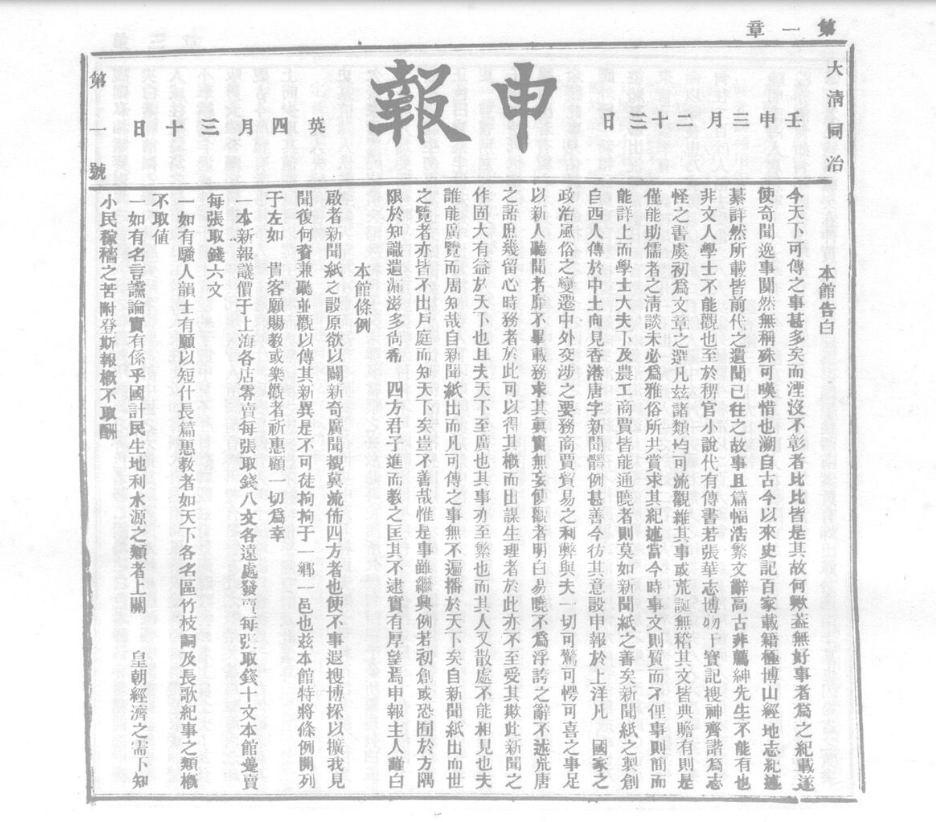 第一章
大清同治
壬申三月二十三日
申報
英四月三十日
第一號
本館告白
今天下可傳之事甚多矣而湮沒不彰者比比皆是其故何歟蓋無好事者為之紀載遂
使奇聞逸事闃然無稱殊可嘆惜也溯自古今以來史記百家載籍極博山經地志紀述
綦詳然所載皆前代之遺聞已往之故事且篇幅浩繁文辭高古非薦紳先生不能有也
非文人學士不能觀也至於稗官小說代有傳書若張華志博物干寶記搜神齊諧為志
怪之書虞初為文章之選凡玆諸類均可流觀維其事或荒誕無稽其文皆典贍有則是
僅能助儒者之清談未必為雅俗所共賞求其紀述當今時事文則質而不俚事則簡而
能詳上而學士大夫下及農工商賈皆能通曉者則莫如新聞紙之善矣新聞紙之製創
自西人傳於中土向見香港唐字新聞體例甚善今仿其意設申報於上洋凡　國家之
政治風俗之變遷中外交涉之要務商賈貿易之利弊與夫一切可驚可愕可喜之事足
以新人聽聞者靡不畢載務求其真實無妄使觀者明白易曉不為浮誇之辭不述荒唐
之語庶幾留心時務者於此可以得其概而出謀生理者於此亦不至受其欺此新聞之
作固大有益於天下也且夫天下至廣也其事亦至繁也而其人又散處不能相見也夫
誰能廣覽而周知哉自新聞紙出而凡可傳之事無不遍播於天下矣自新聞紙出而世
之覽者亦皆不出戶庭而知天下矣豈不善哉惟是事雖繼興例若初創或恐囿於方隅
限於知識遺漏滋多尚希　四方君子進而教之匡其不逮實有厚望焉申報主人謹白
本館條例
啟者新聞紙之設原欲以闢新奇廣聞覩冀流佈四方者也使不事遐搜博採以擴我見
聞復何資兼聽並觀以傳其新異是不可徒拘拘于一鄉一邑也茲本館特將條例開列
于左如　貴客願賜教或樂觀者祈惠顧一切為幸
一本新報議價于上海各店零賣每張取錢八文各遠處發賣每張取錢十文本館躉賣
每張取錢六文
一如有騷人韻士有願以短什長篇惠教者如天下各名區竹枝詞及長歌紀事之類概
不取值
一如有名言讜論實有係乎國計民生地利水源之類者上關　皇朝經濟之需下知
小民稼穡之苦附登斯報概不取酬